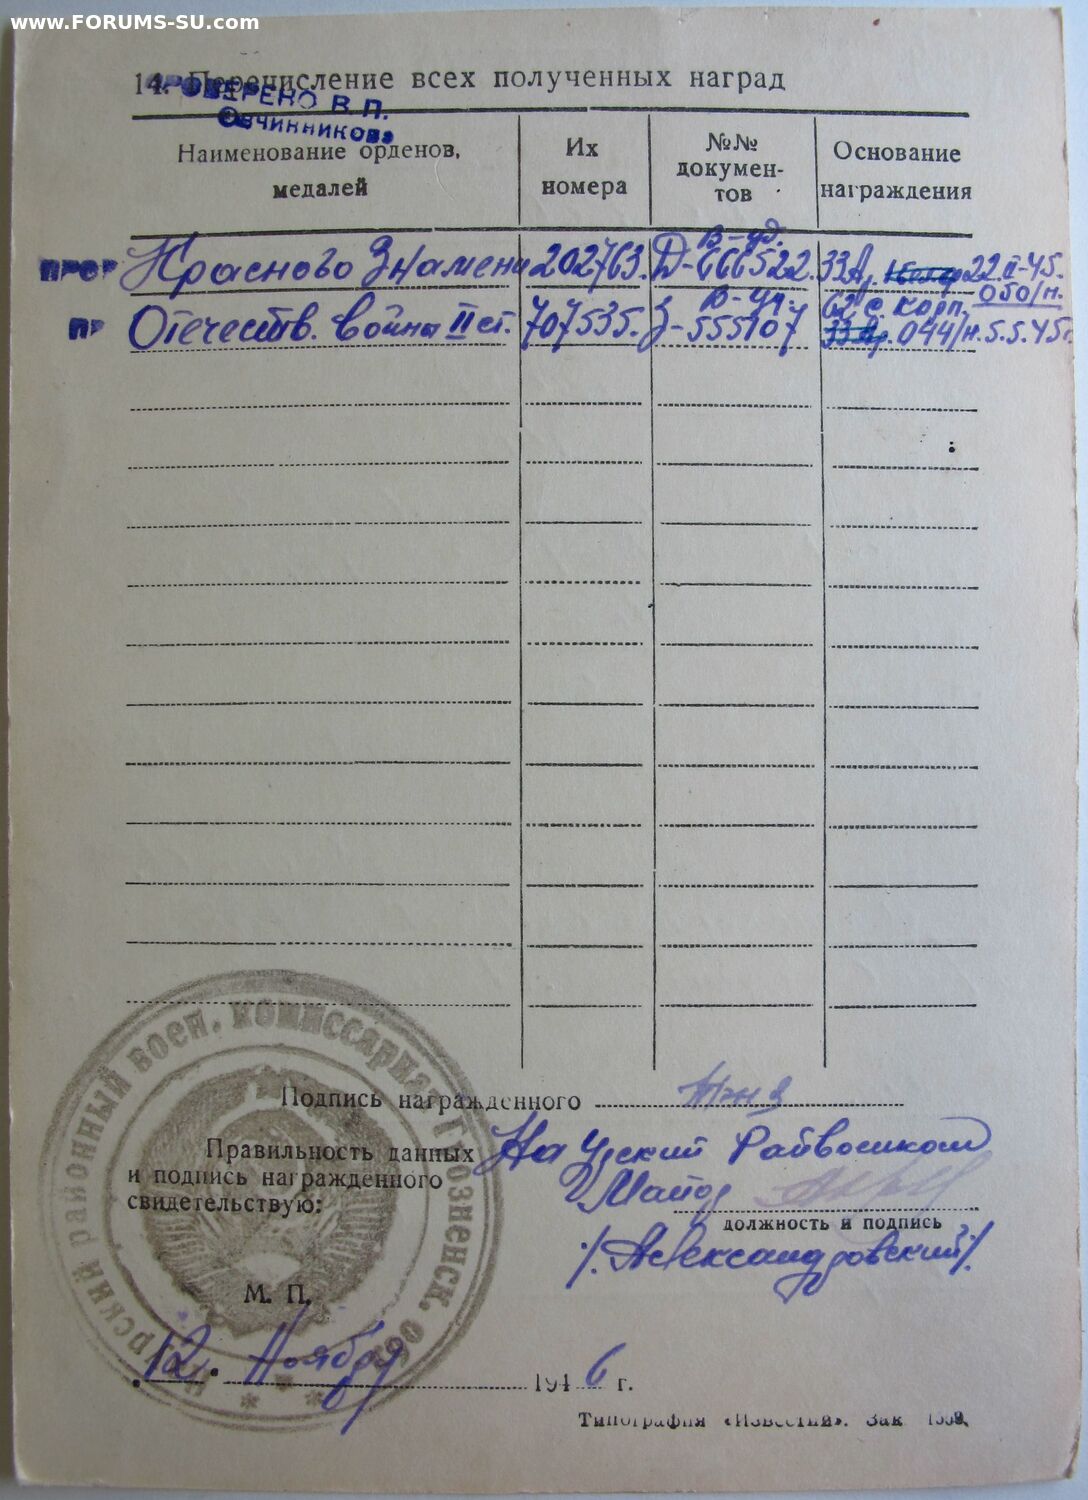 www.FORUMS-SU.com
14. Перечисление всех полученных наград
ПРОВЕРЕНО В.П.
Овчинникова
Наименование орденов, медалей
Их номера
№№ докумен-тов
Основание награждения
ПРОВ Красного Знамени 202763. В-уд. Д-666522 33 А, 22.II-45. 050/н.
ПР Отечеств. война II ст. 707535. В-уд. З-555107 62 с корп. 044/н. 5.5.45г.
Подпись награжденного
Правильность данных
и подпись награжденного
свидетельствую:
Райвоенком
Майор
должность и подпись
/. Александровский /.
М. П.
районный воен. комиссариат Грозненск. об
12. Ноября 1946 г.
Типография «Известий». Зак